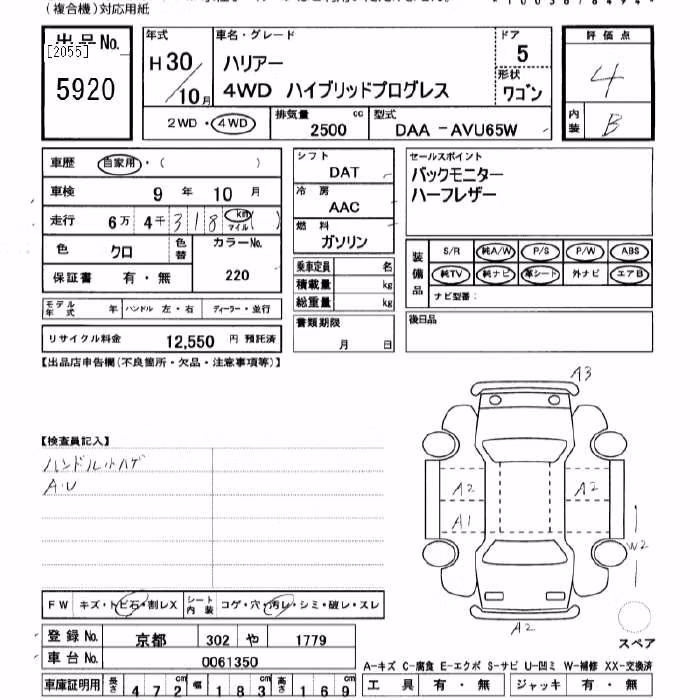 (複合機)対応用紙
出品No.
[2055]
5920
年式
H30/10月
車名・グレード
ハリアー
4WD ハイブリッドプログレス
ドア
5
形状
ワゴン
評価点
4
内装
B
2WD・4WD
排気量
2500 cc
型式
DAA-AVU65W
車歴 自家用・( )
車検 9年 10月
走行 6万 4千 318 km マイル ( )
色 クロ 色替
カラーNo.
220
保証書 有・無
シフト
DAT
冷房
AAC
燃料
ガソリン
乗車定員 名
積載量 kg
総重量 kg
セールスポイント
バックモニター
ハーフレザー
装備品
S/R 純A/W P/S P/W ABS
純TV 純ナビ 革シート 外ナビ エアB
ナビ型番:
モデル年式 年 ハンドル 左・右 ディーラー・並行
リサイクル料金 12,550 円 預託済
書類期限
月 日
後日品
【出品店申告欄(不良箇所・欠品・注意事項等)】
【検査員記入】
ハンドル小ハゲ
A・U
A3
A2 A2
A1
W2
A2
スペア
FW キズ・トビ石・割レX シート内装 コゲ・穴・汚レ・シミ・破レ・スレ
登録No. 京都 302 や 1779
車台No. 0061350
車庫証明用 長さ 472cm 幅 183cm 高さ 169cm
A-キズ C-腐食 E-エクボ S-サビ U-凹ミ W-補修 XX-交換済
工具 有・無 ジャッキ 有・無